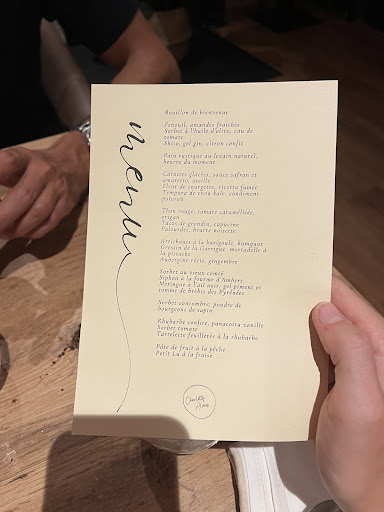 menu
Bouillon de bienvenue
Fenouil, amandes fraîches
Sorbet à l'huile d'olive, eau de
tomate
Shiso, gel gin, citron confit
Pain rustique au levain naturel,
beurre du moment
Carottes glacées, sauce safran et
amaretto, oseille
Fleur de courgette, ricotta fumée
Tempura de chou kale, condiment
poivron
Thon rouge, tomate caramélisée,
origan
Tacos de gyndón, capucine
Palourdes, beurre noisette
Artichauts à la barigoule, kumquat
Gressin de la Garrigue, mortadelle à
la pistache
Aubergine rôtie, gingembre
Sorbet au vieux comté
Siphon à la fourme d'Ambert
Meringue à l'ail noir, gel piment et
tomme de brebis des Pyrénées
Sorbet concombre, poudre de
bourgeons de sapin
Rhubarbe confite, panacotta vanille
Sorbet tomate
Tartelette feuilletée à la rhubarbe
Pâte de fruit à la pêche
Petit Lu à la fraise